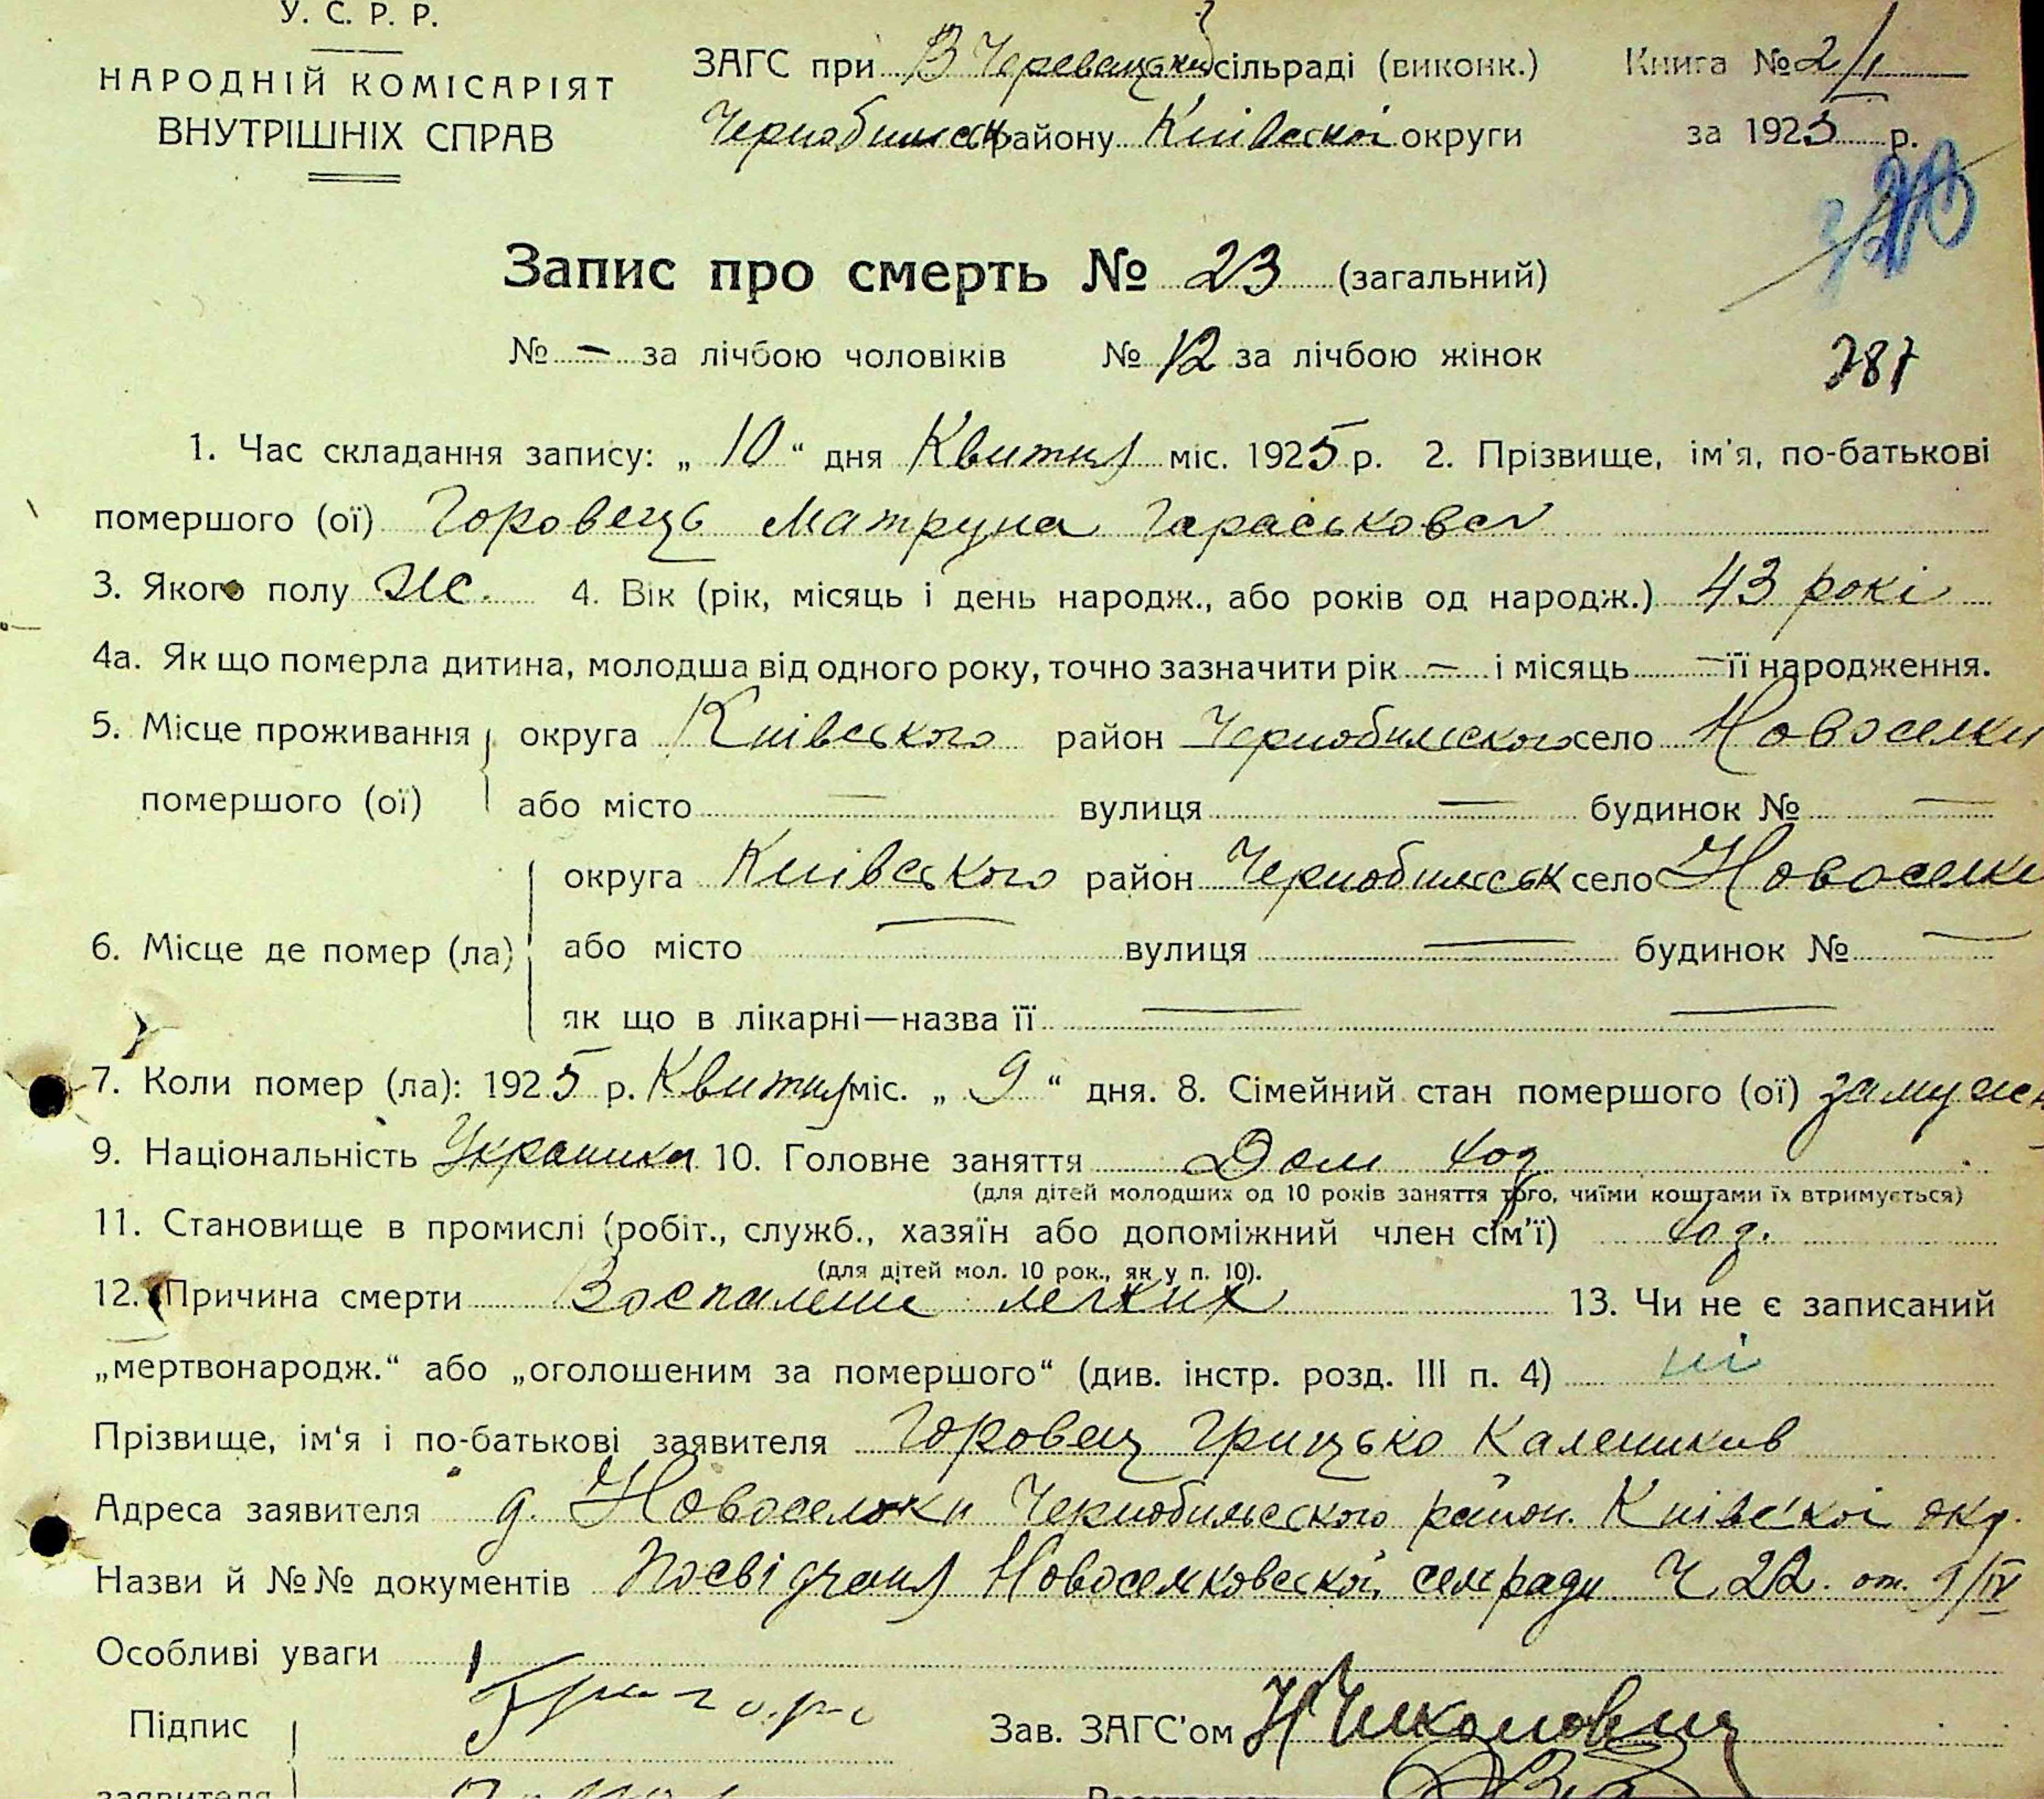 У. С. Р. Р.
НАРОДНІЙ КОМІСАРІЯТ
ВНУТРІШНІХ СПРАВ
ЗАГС при В Черевацький сільраді (виконк.)
Чернобильськ району Київської округи
Книга № 2/1
за 1925 р.
Запис про смерть № 23 (загальний)
№ – за лічбою чоловіків № 12 за лічбою жінок
787
1. Час складання запису: „ 10 “ дня Квитня міс. 1925 р. 2. Прізвище, ім'я, по-батькові
помершого (ої) Горовець Матруна Гараськова
3. Якого полу Же. 4. Вік (рік, місяць і день народж., або років од народж.) 43 рокі
4а. Як що померла дитина, молодша від одного року, точно зазначити рік – і місяць – її народження.
5. Місце проживання округа Київського район Чернобильского село Новоселки
помершого (ої) або місто — вулиця — будинок № —
округа Київського район Чернобильськ село Новоселки
6. Місце де помер (ла) або місто — вулиця — будинок № —
як що в лікарні—назва її — —
7. Коли помер (ла): 1925 р. Квитня міс. „ 9 “ дня. 8. Сімейний стан помершого (ої) замужн
9. Національність Украинка 10. Головне заняття Дом хоз
(для дітей молодших од 10 років заняття того, чиїми коштами їх втримується)
11. Становище в промислі (робіт., служб., хазяїн або допоміжний член сім'ї) хоз.
(для дітей мол. 10 рок., як у п. 10).
12. Причина смерти Воспаление легких 13. Чи не є записаний
„мертвонародж.“ або „оголошеним за помершого“ (див. інстр. розд. III п. 4) ні
Прізвище, ім'я і по-батькові заявителя Горовец Грицько Калеников
Адреса заявителя д. Новоселки Чернобильского район. Київської окр.
Назви й №№ документів Посвідчення Новоселковской селради Ч 22. от. 9/IV
Особливі уваги
Підпис Григоро Зав. ЗАГС'ом
заявителя